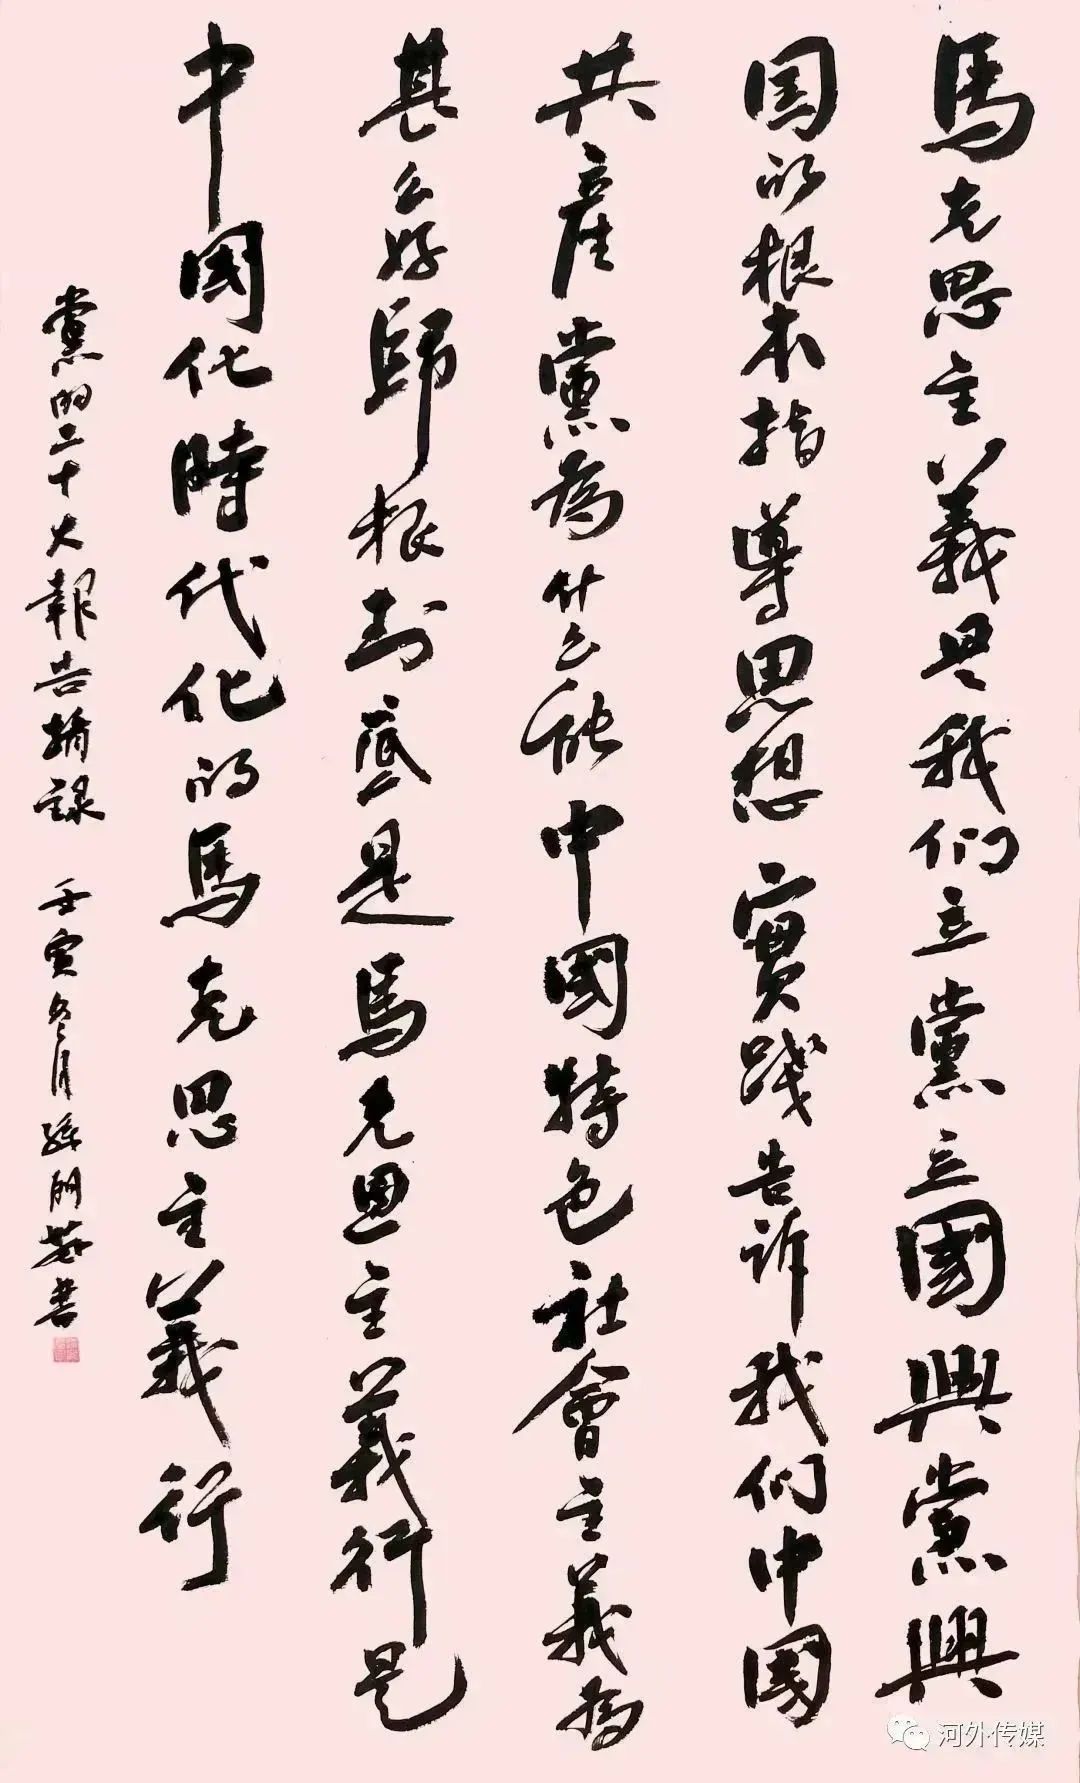 馬克思主義是我们立黨立國興黨興
国的根本指導思想實踐告诉我们中國
共産黨為什么能中國特色社會主義為
甚么好歸根到底是馬克思主義行是
中國化時代化的馬克思主義行
黨的二十大報告摘録 壬寅冬月 孫書
河外传媒